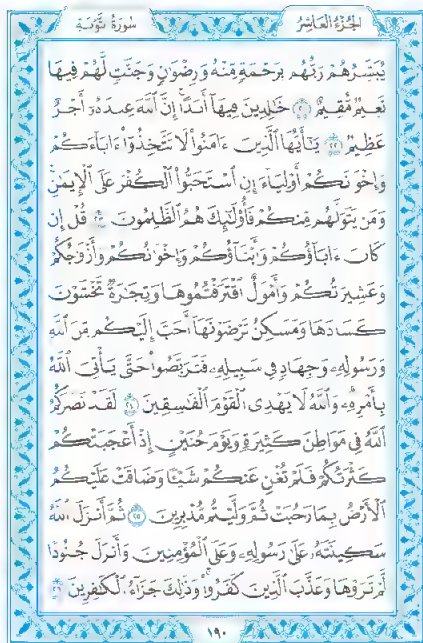 الجزء العاشر
سورة التوبة
يُبَشِّرُهُمْ رَبُّهُم بِرَحْمَةٍ مِّنْهُ وَرِضْوَٰنٍ وَجَنَّٰتٍ لَّهُمْ فِيهَا
نَعِيمٌ مُّقِيمٌ ٢١ خَٰلِدِينَ فِيهَآ أَبَدًا إِنَّ ٱللَّهَ عِندَهُۥٓ أَجْرٌ
عَظِيمٌ ٢٢ يَٰٓأَيُّهَا ٱلَّذِينَ ءَامَنُوا۟ لَا تَتَّخِذُوٓا۟ ءَابَآءَكُمْ
وَإِخْوَٰنَكُمْ أَوْلِيَآءَ إِنِ ٱسْتَحَبُّوا۟ ٱلْكُفْرَ عَلَى ٱلْإِيمَٰنِ
وَمَن يَتَوَلَّهُم مِّنكُمْ فَأُو۟لَٰٓئِكَ هُمُ ٱلظَّٰلِمُونَ ٢٣ قُلْ إِن
كَانَ ءَابَآؤُكُمْ وَأَبْنَآؤُكُمْ وَإِخْوَٰنُكُمْ وَأَزْوَٰجُكُمْ
وَعَشِيرَتُكُمْ وَأَمْوَٰلٌ ٱقْتَرَفْتُمُوهَا وَتِجَٰرَةٌ تَخْشَوْنَ
كَسَادَهَا وَمَسَٰكِنُ تَرْضَوْنَهَآ أَحَبَّ إِلَيْكُم مِّنَ ٱللَّهِ
وَرَسُولِهِۦ وَجِهَادٍ فِى سَبِيلِهِۦ فَتَرَبَّصُوا۟ حَتَّىٰ يَأْتِىَ ٱللَّهُ
بِأَمْرِهِۦ وَٱللَّهُ لَا يَهْدِى ٱلْقَوْمَ ٱلْفَٰسِقِينَ ٢٤ لَقَدْ نَصَرَكُمُ
ٱللَّهُ فِى مَوَاطِنَ كَثِيرَةٍ وَيَوْمَ حُنَيْنٍ إِذْ أَعْجَبَتْكُمْ
كَثْرَتُكُمْ فَلَمْ تُغْنِ عَنكُمْ شَيْـًٔا وَضَاقَتْ عَلَيْكُمُ
ٱلْأَرْضُ بِمَا رَحُبَتْ ثُمَّ وَلَّيْتُم مُّدْبِرِينَ ٢٥ ثُمَّ أَنزَلَ ٱللَّهُ
سَكِينَتَهُۥ عَلَىٰ رَسُولِهِۦ وَعَلَى ٱلْمُؤْمِنِينَ وَأَنزَلَ جُنُودًا
لَّمْ تَرَوْهَا وَعَذَّبَ ٱلَّذِينَ كَفَرُوا۟ وَذَٰلِكَ جَزَآءُ ٱلْكَٰفِرِينَ ٢٦
١٩٠